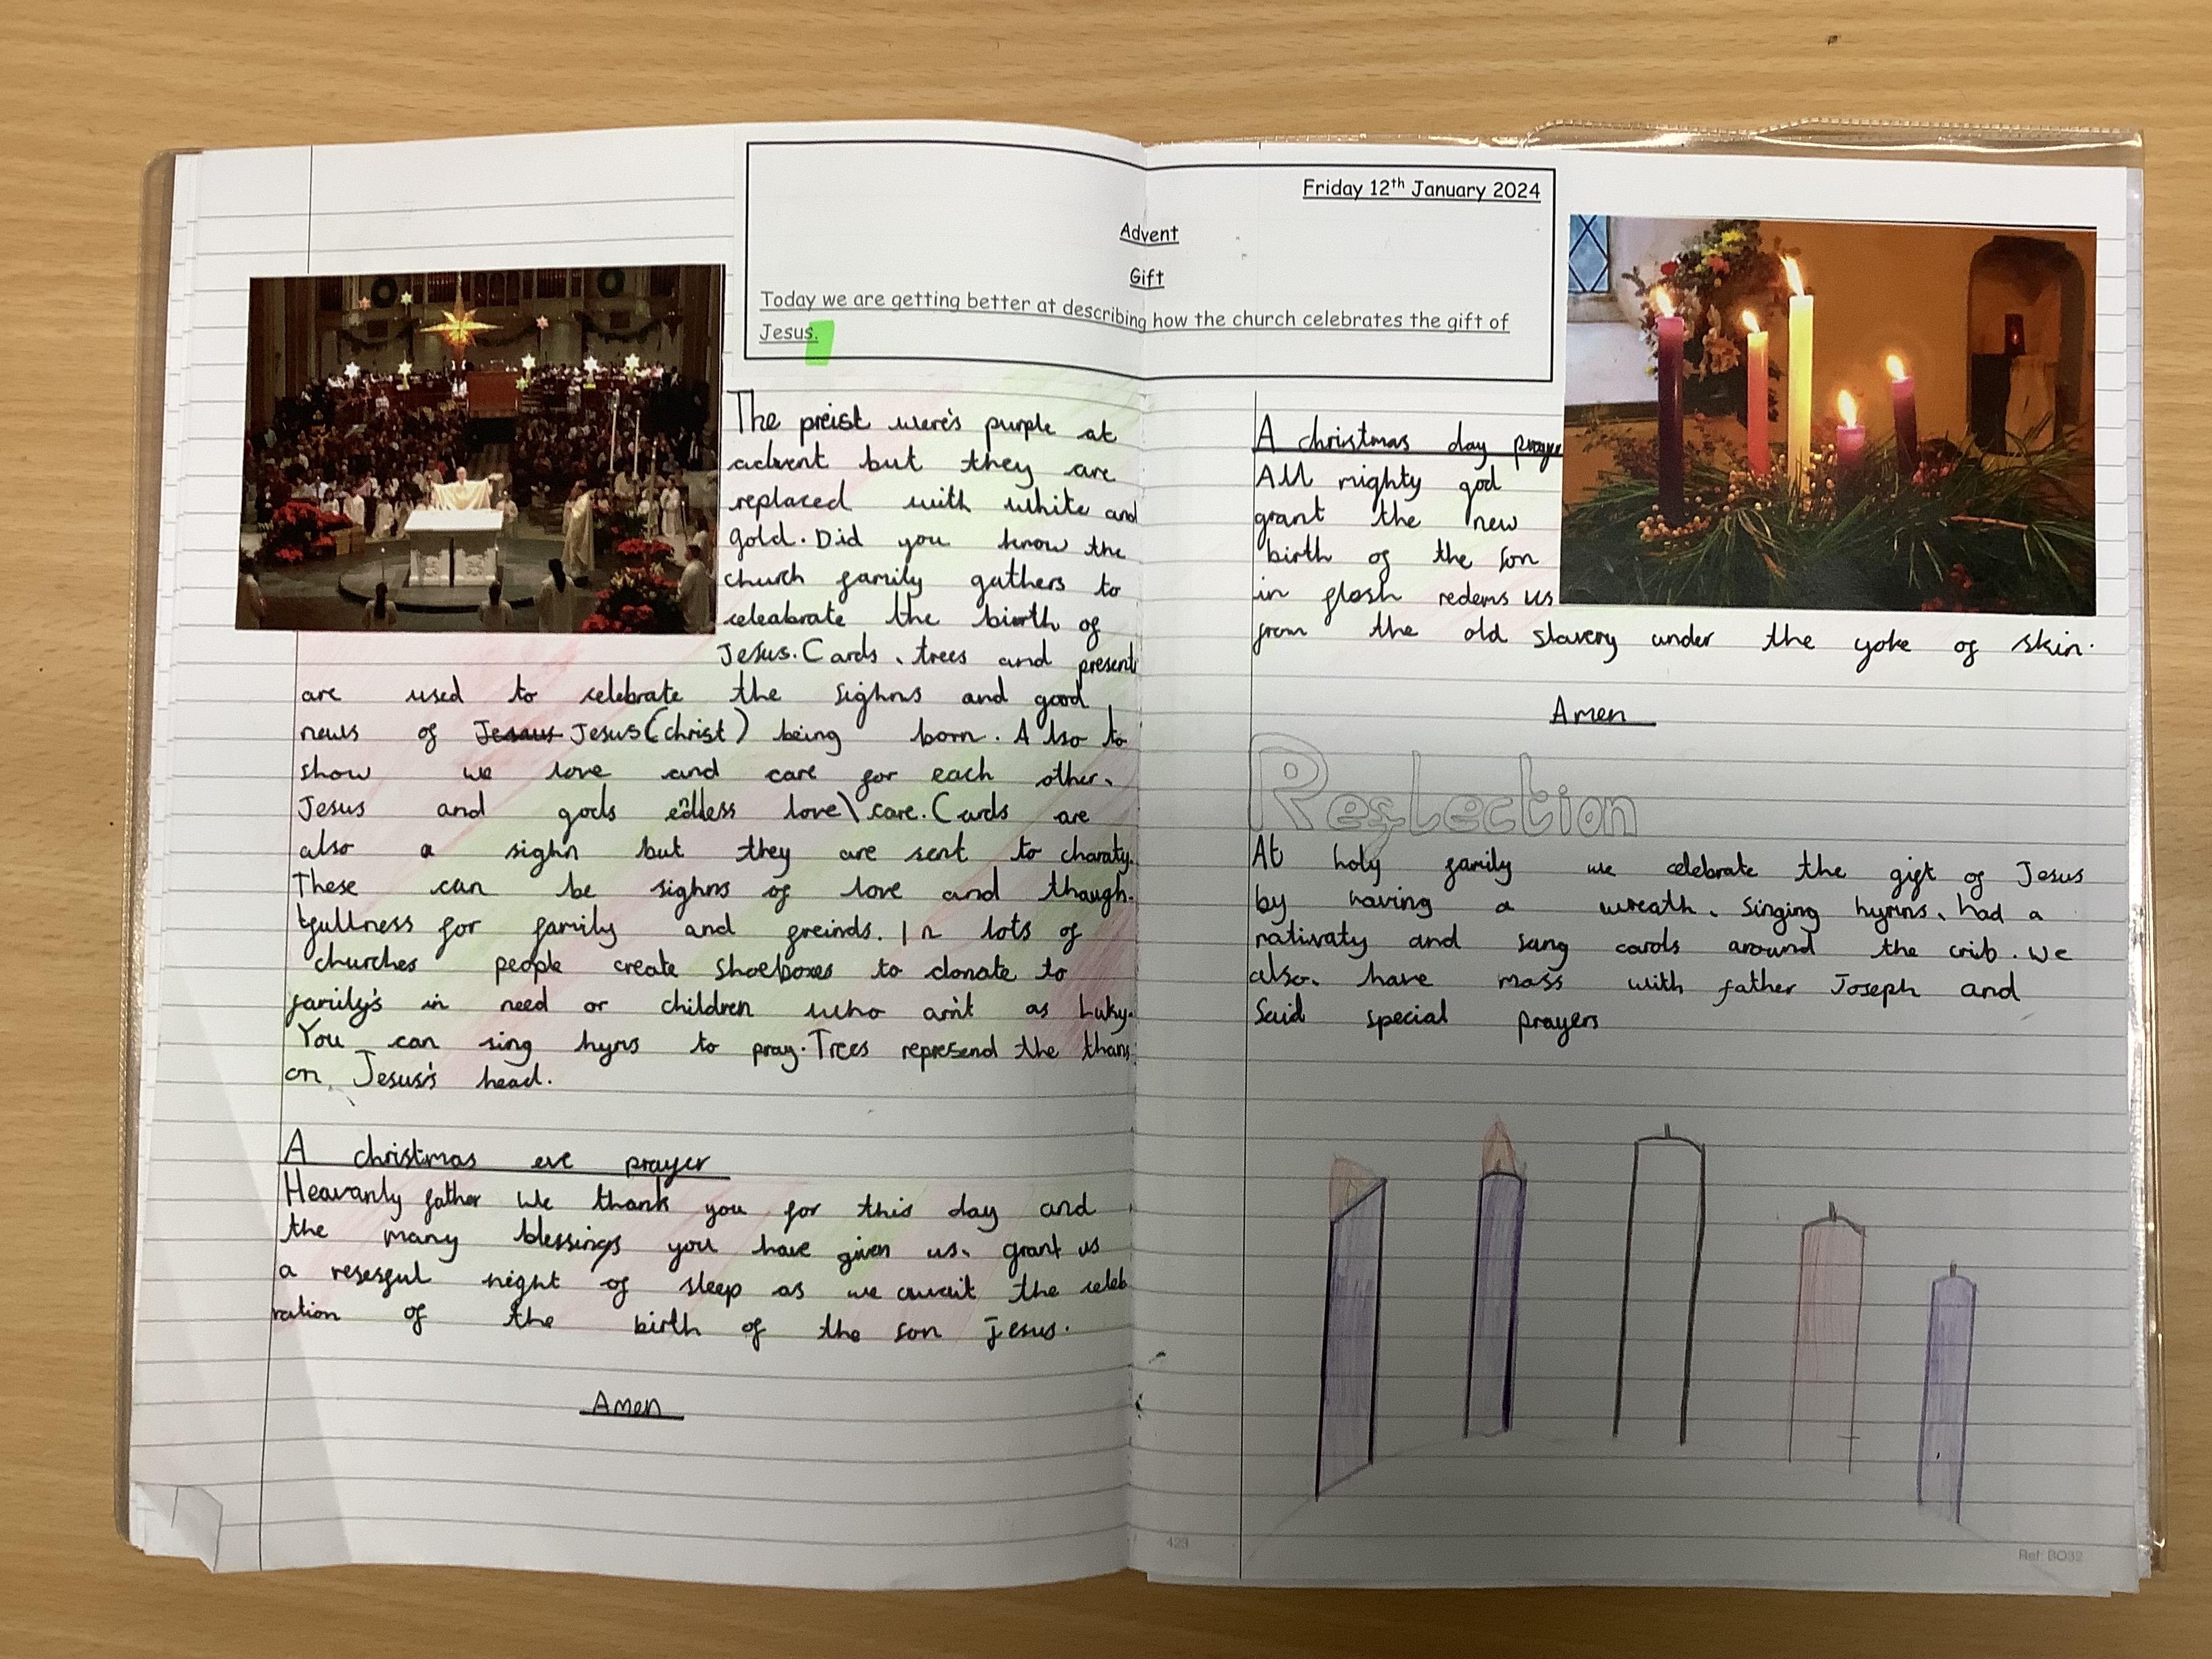 Friday 12th January 2024
Advent
Gift
Today we are getting better at describing how the church celebrates the gift of
Jesus.
The preist were's purple at
advent but they are
replaced with white and
gold. Did you know the
church family gathers to
celeabrate the birth of
Jesus. Cards, trees and present
are used to celebrate the sighns and good
news of Jesus (christ) being born. Also to
show we love and care for each other,
Jesus and gods endless love\care. Cards are
also a sighn but they are sent to charaty.
These can be sighns of love and though-
tfullness for family and freinds. In lots of
churches people create shoeboxes to donate to
family's in need or children who ain't as Luky.
You can sing hyms to pray. Trees represend the
on Jesus's head.
A christmas eve prayer
Heavanly father we thank you for this day and
the many blessings you have given us, grant us
a resesful night of sleep as we await the celeb
ration of the birth of the son jesus.
Amen
A christmas day prayer
All mighty god
grant the new
birth of the son
in flosh redems us
from the old slavery under the yoke of skin.
Amen
Reflection
At holy family we celebrate the gift of Jesus
by having a wreath, singing hymns, had a
nativaty and sang carols around the crib. we
also, have mass with father Joseph and
Said special prayers
429
Ref: BO32